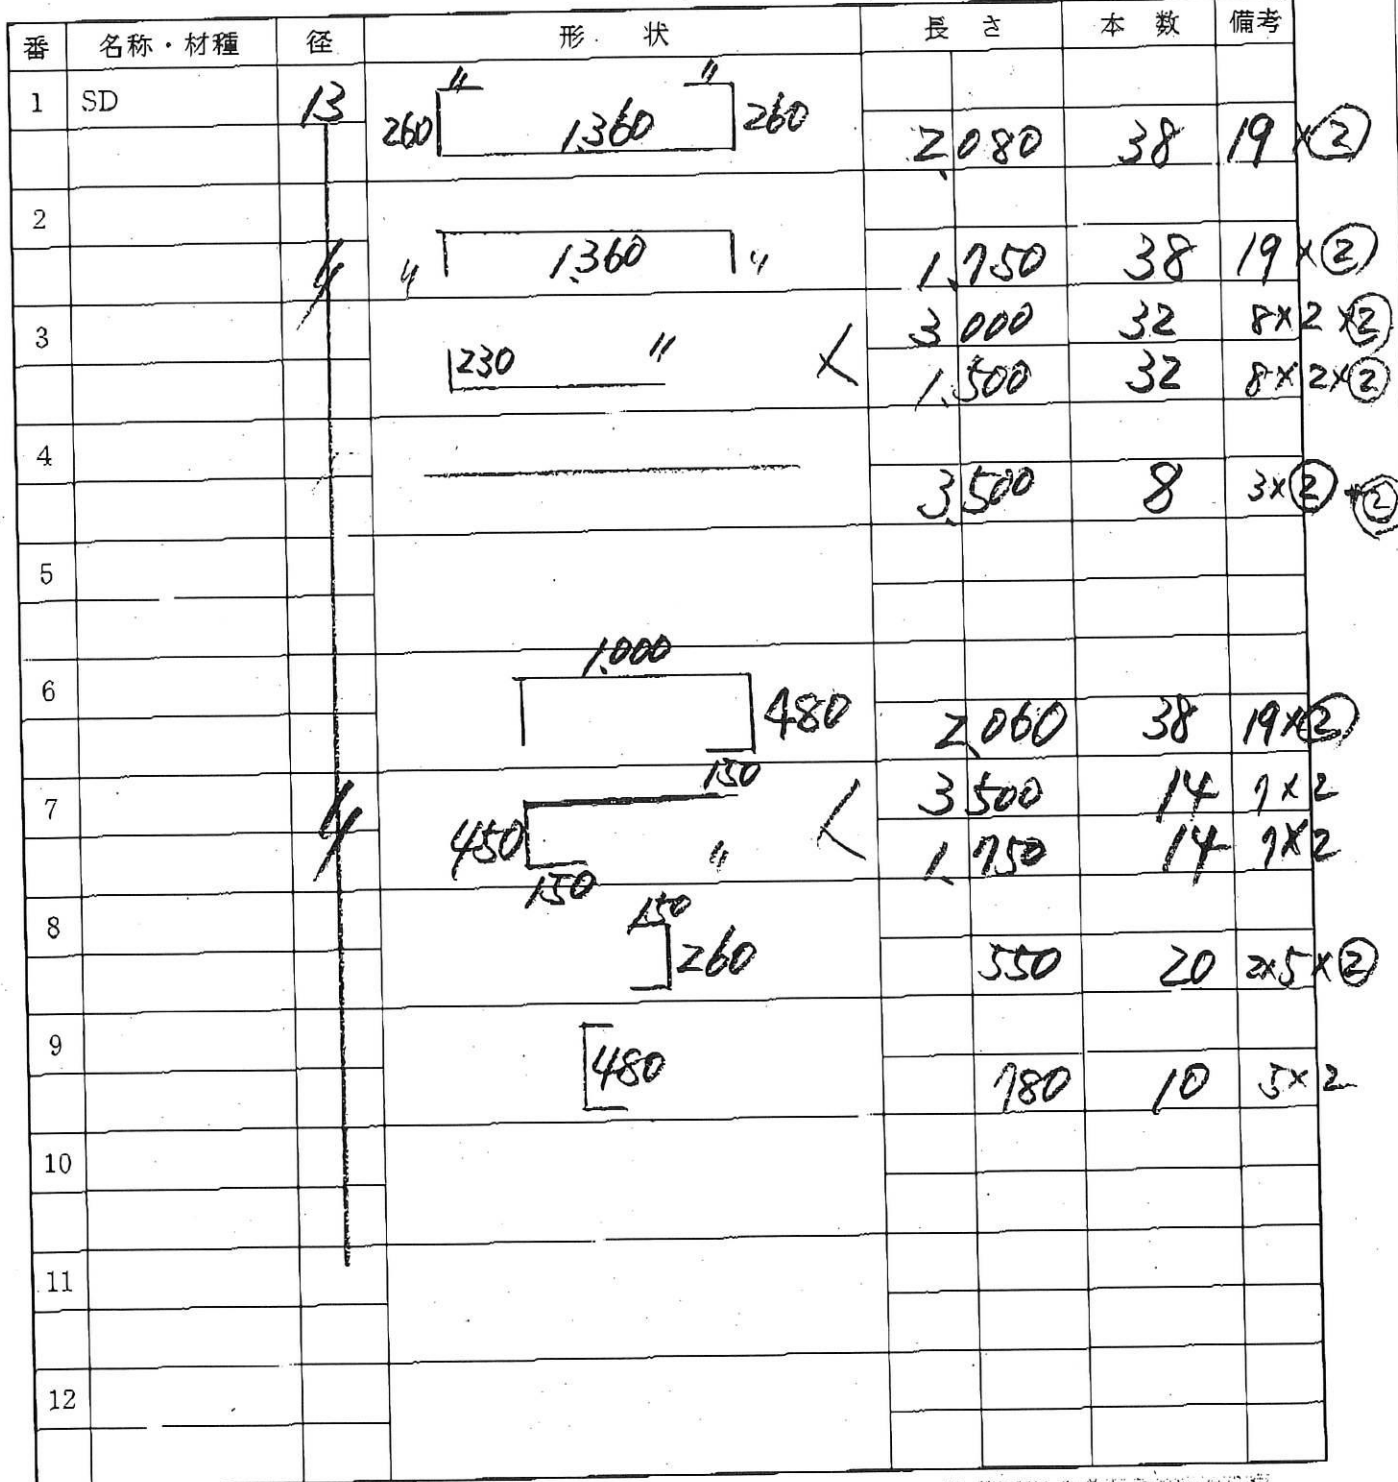 番 名称・材種 径 形 状 長 さ 本 数 備考
1 SD 13 〃 〃 260 1,360 260 2,080 38 19×②
2 〃 〃 1,360 〃 1,750 38 19×②
3 3,000 32 8×2×②
230 〃 1,500 32 8×2×②
4 3,500 8 3×②+②
5
6 1,000 480 150 2,060 38 19×②
7 〃 3,500 14 7×2
450 150 〃 1,750 14 7×2
8 150 260 550 20 2×5×②
9 480 780 10 5×2
10
11
12